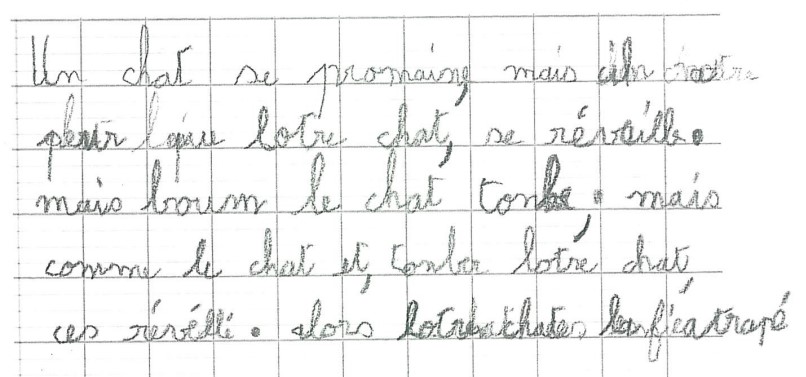 Un chat se promaine, mais il
peur que lotre chat, se réveille.
mais boum le chat tonbe. mais
comme le chat et, tonber lotre chat,
ces révéllé. alors lotre chat